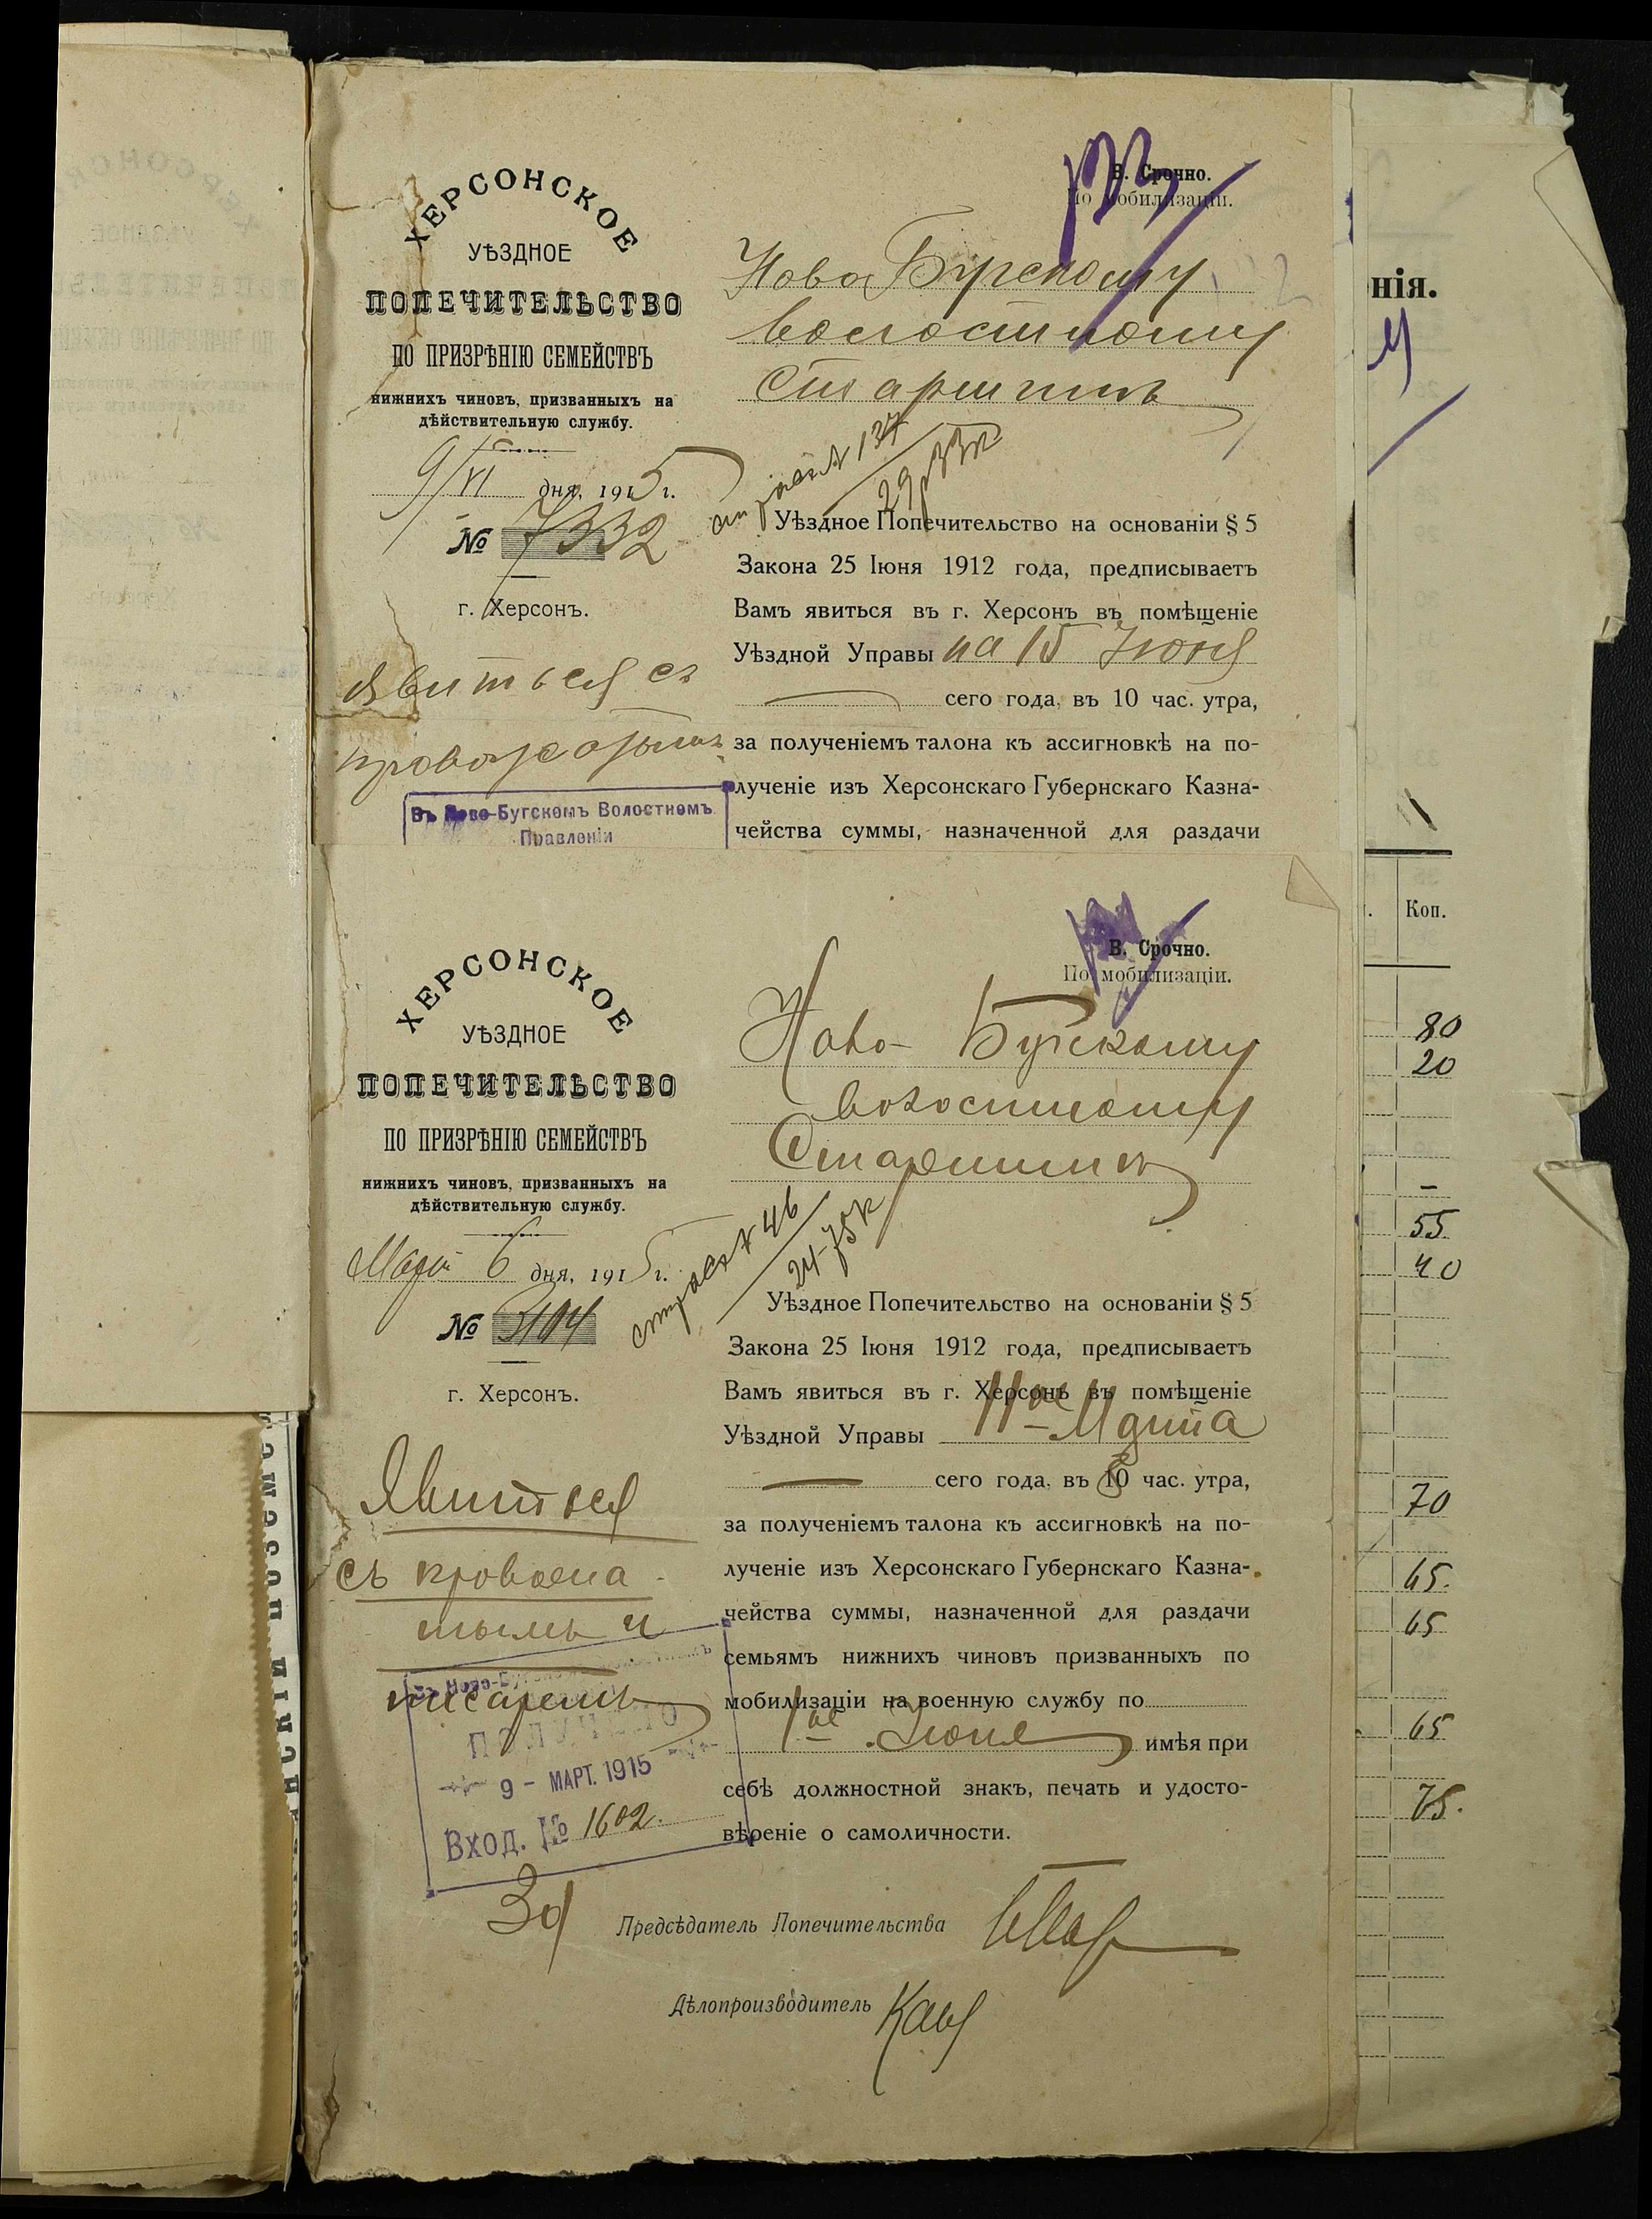 ХЕРСОНСКОЕ
УѢЗДНОЕ
ПОПЕЧИТЕЛЬСТВО
ПО ПРИЗРѢНІЮ СЕМЕЙСТВЪ
нижнихъ чиновъ, призванныхъ на
дѣйствительную службу.
9/VI дня, 1915 г.
№ 7332
г. Херсонъ.
явиться съ
провожатымъ
Въ Ново-Бугскомъ Волостномъ
Правленіи
В. Срочно.
По мобилизаціи.
Ново Бугскому
волостному
Старшинѣ
29 33к
Уѣздное Попечительство на основаніи § 5
Закона 25 Іюня 1912 года, предписываетъ
Вамъ явиться въ г. Херсонъ въ помѣщеніе
Уѣздной Управы на 15 Іюня
сего года, въ 10 час. утра,
за полученіемъ талона къ ассигновкѣ на по-
лученіе изъ Херсонскаго Губернскаго Казна-
чейства суммы, назначенной для раздачи
ХЕРСОНСКОЕ
УѢЗДНОЕ
ПОПЕЧИТЕЛЬСТВО
ПО ПРИЗРѢНІЮ СЕМЕЙСТВЪ
нижнихъ чиновъ, призванныхъ на
дѣйствительную службу.
Март 6 дня, 1915 г.
№ 3104
г. Херсонъ.
Явиться
съ провожа-
тымъ и
писаремъ
Въ Ново-
ПОЛУЧЕНО
9 - МАРТ. 1915
Вход. № 1602.
В. Срочно.
По мобилизаціи.
Ново- Бугскому
волостному
Старшинѣ
46
24-75к
Уѣздное Попечительство на основаніи § 5
Закона 25 Іюня 1912 года, предписываетъ
Вамъ явиться въ г. Херсонъ въ помѣщеніе
Уѣздной Управы 11ое Марта
сего года, въ 10 час. утра,
за полученіемъ талона къ ассигновкѣ на по-
лученіе изъ Херсонскаго Губернскаго Казна-
чейства суммы, назначенной для раздачи
семьямъ нижнихъ чиновъ призванныхъ по
мобилизаціи на военную службу по
1ое Іюня имѣя при
себѣ должностной знакъ, печать и удосто-
вѣреніе о самоличности.
За Предсѣдатель Попечительства
Дѣлопроизводитель
нія.
Коп.
80
20
-
55
40
70
65.
65
65
75.